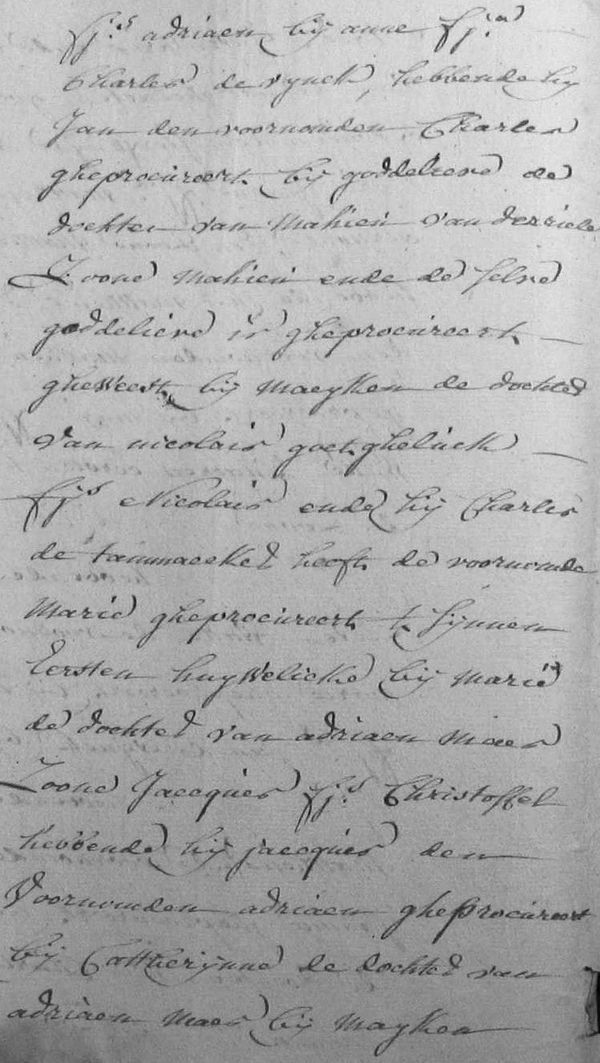 fj.s adriaen bij anne fj.a
Charles de vynck, hebbende hij
Jan den voornomden Charles
gheprocureert bij goddelieve de
dochter van Mahieu van derriele
Zoone Mahieu ende de selve
goddelieve is gheprocureert
gheweest bij Maeyken de dochter
van nicolais goetghelück
fj.s Nicolais ende hij Charles
de tammaeker heeft de voornomde
Marie gheprocureert t sijnnen
Eersten huywelicke bij Marie
de dochter van adriaen Maes
Zoone Jacques fj.s Christoffel
hebbende hij jacques den
Voornomden adriaen gheprocureert
bij Cattherijnne de dochter van
adriaen Maes bij Mayken